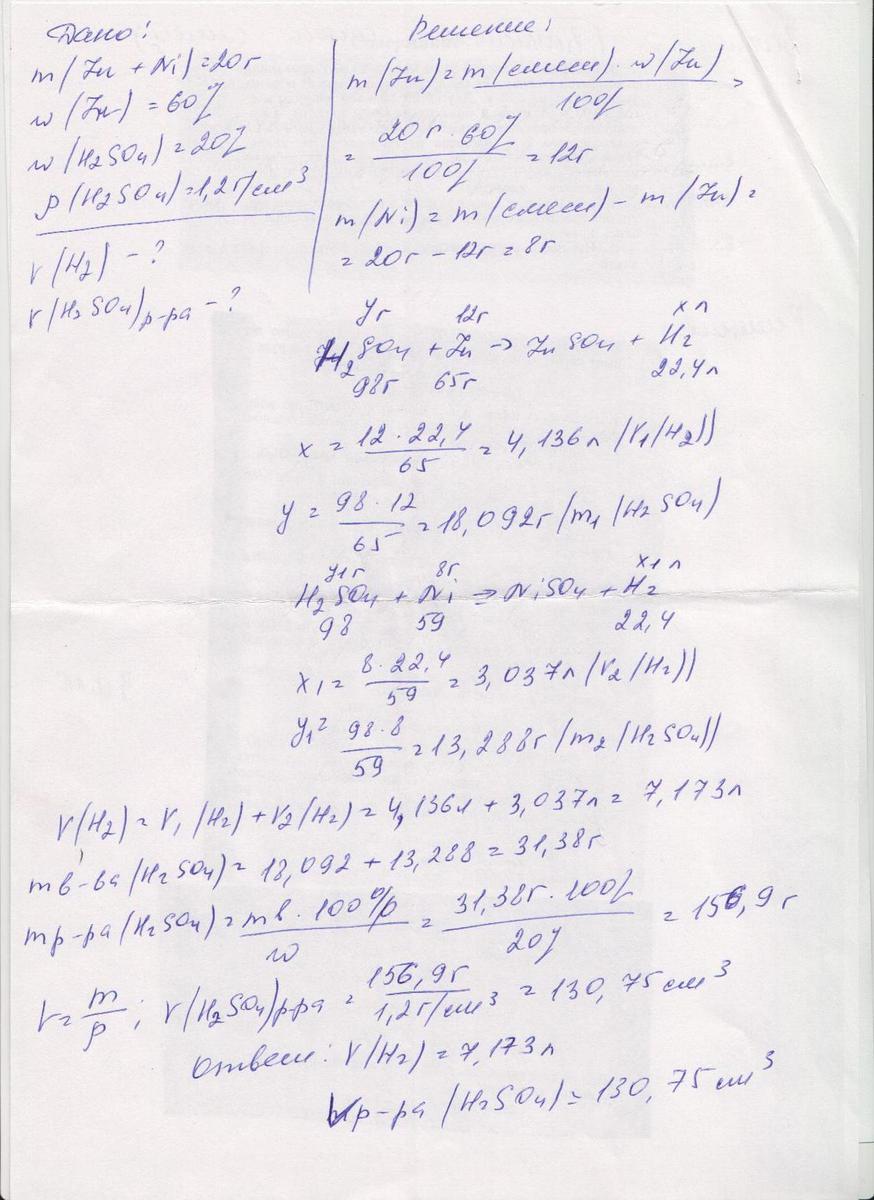 Дано:
m(Zn + Ni) = 20г
w(Zn) = 60%
w(H2SO4) = 20%
ρ(H2SO4) = 1,2г/см³
V(H2) - ?
V(H2SO4)р-ра - ?
Решение:
m(Zn) = m(смеси) · w(Zn) / 100% =
= 20г · 60% / 100% = 12г
m(Ni) = m(смеси) - m(Zn) =
= 20г - 12г = 8г
yг 12г x л
H2SO4 + Zn → ZnSO4 + H2
98г 65г 22,4л
x = 12 · 22,4 / 65 = 4,136л (V1(H2))
y = 98 · 12 / 65 = 18,092г (m1(H2SO4)
y1г 8г x1 л
H2SO4 + Ni → NiSO4 + H2
98 59 22,4
x1 = 8 · 22,4 / 59 = 3,037л (V2(H2))
y1 = 98 · 8 / 59 = 13,288г (m2(H2SO4))
V(H2) = V1(H2) + V2(H2) = 4,136л + 3,037л = 7,173л
m в-ва (H2SO4) = 18,092 + 13,288 = 31,38г
m р-ра (H2SO4) = mв · 100% / w = 31,38г · 100% / 20% = 156,9 г
V = m/ρ; V(H2SO4)р-ра = 156,9г / 1,2г/см³ = 130,75 см³
Ответ: V(H2) = 7,173л
Vр-ра (H2SO4) = 130,75 см³